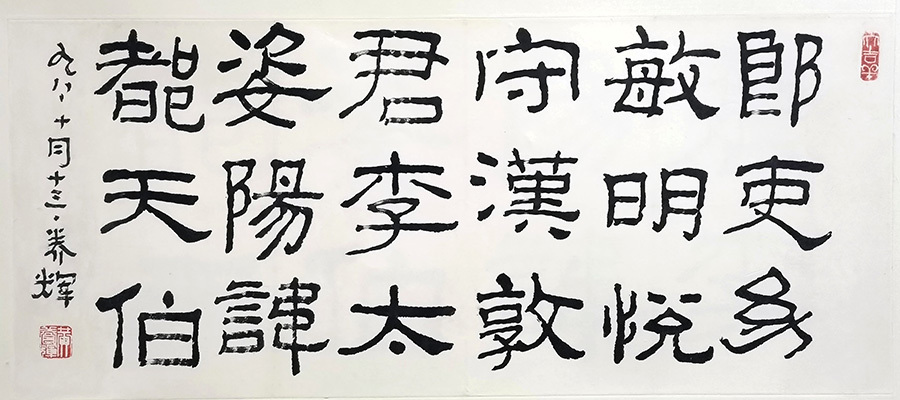 郎吏幼
敏明悅
守漢敦
君李太
姿陽諱
都天伯
九八、十月十三、养輝